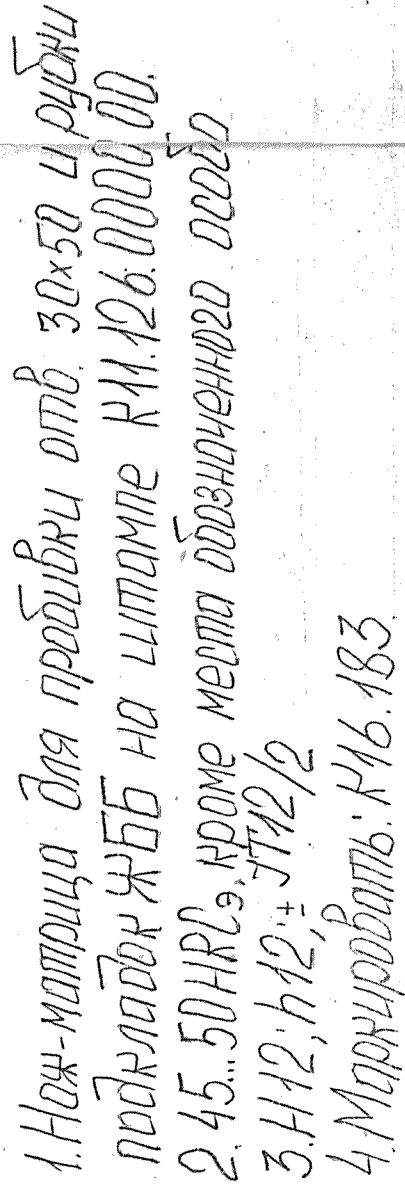 1. Нож-матрица для пробивки отв. 30×50 и рубки
подкладок ЖББ на штампе К11.126.0000 00.
2. 45...50HRCэ, кроме места обозначенного особо
3. H12; h12; ± JT12/2
4. Маркировать: К16.183